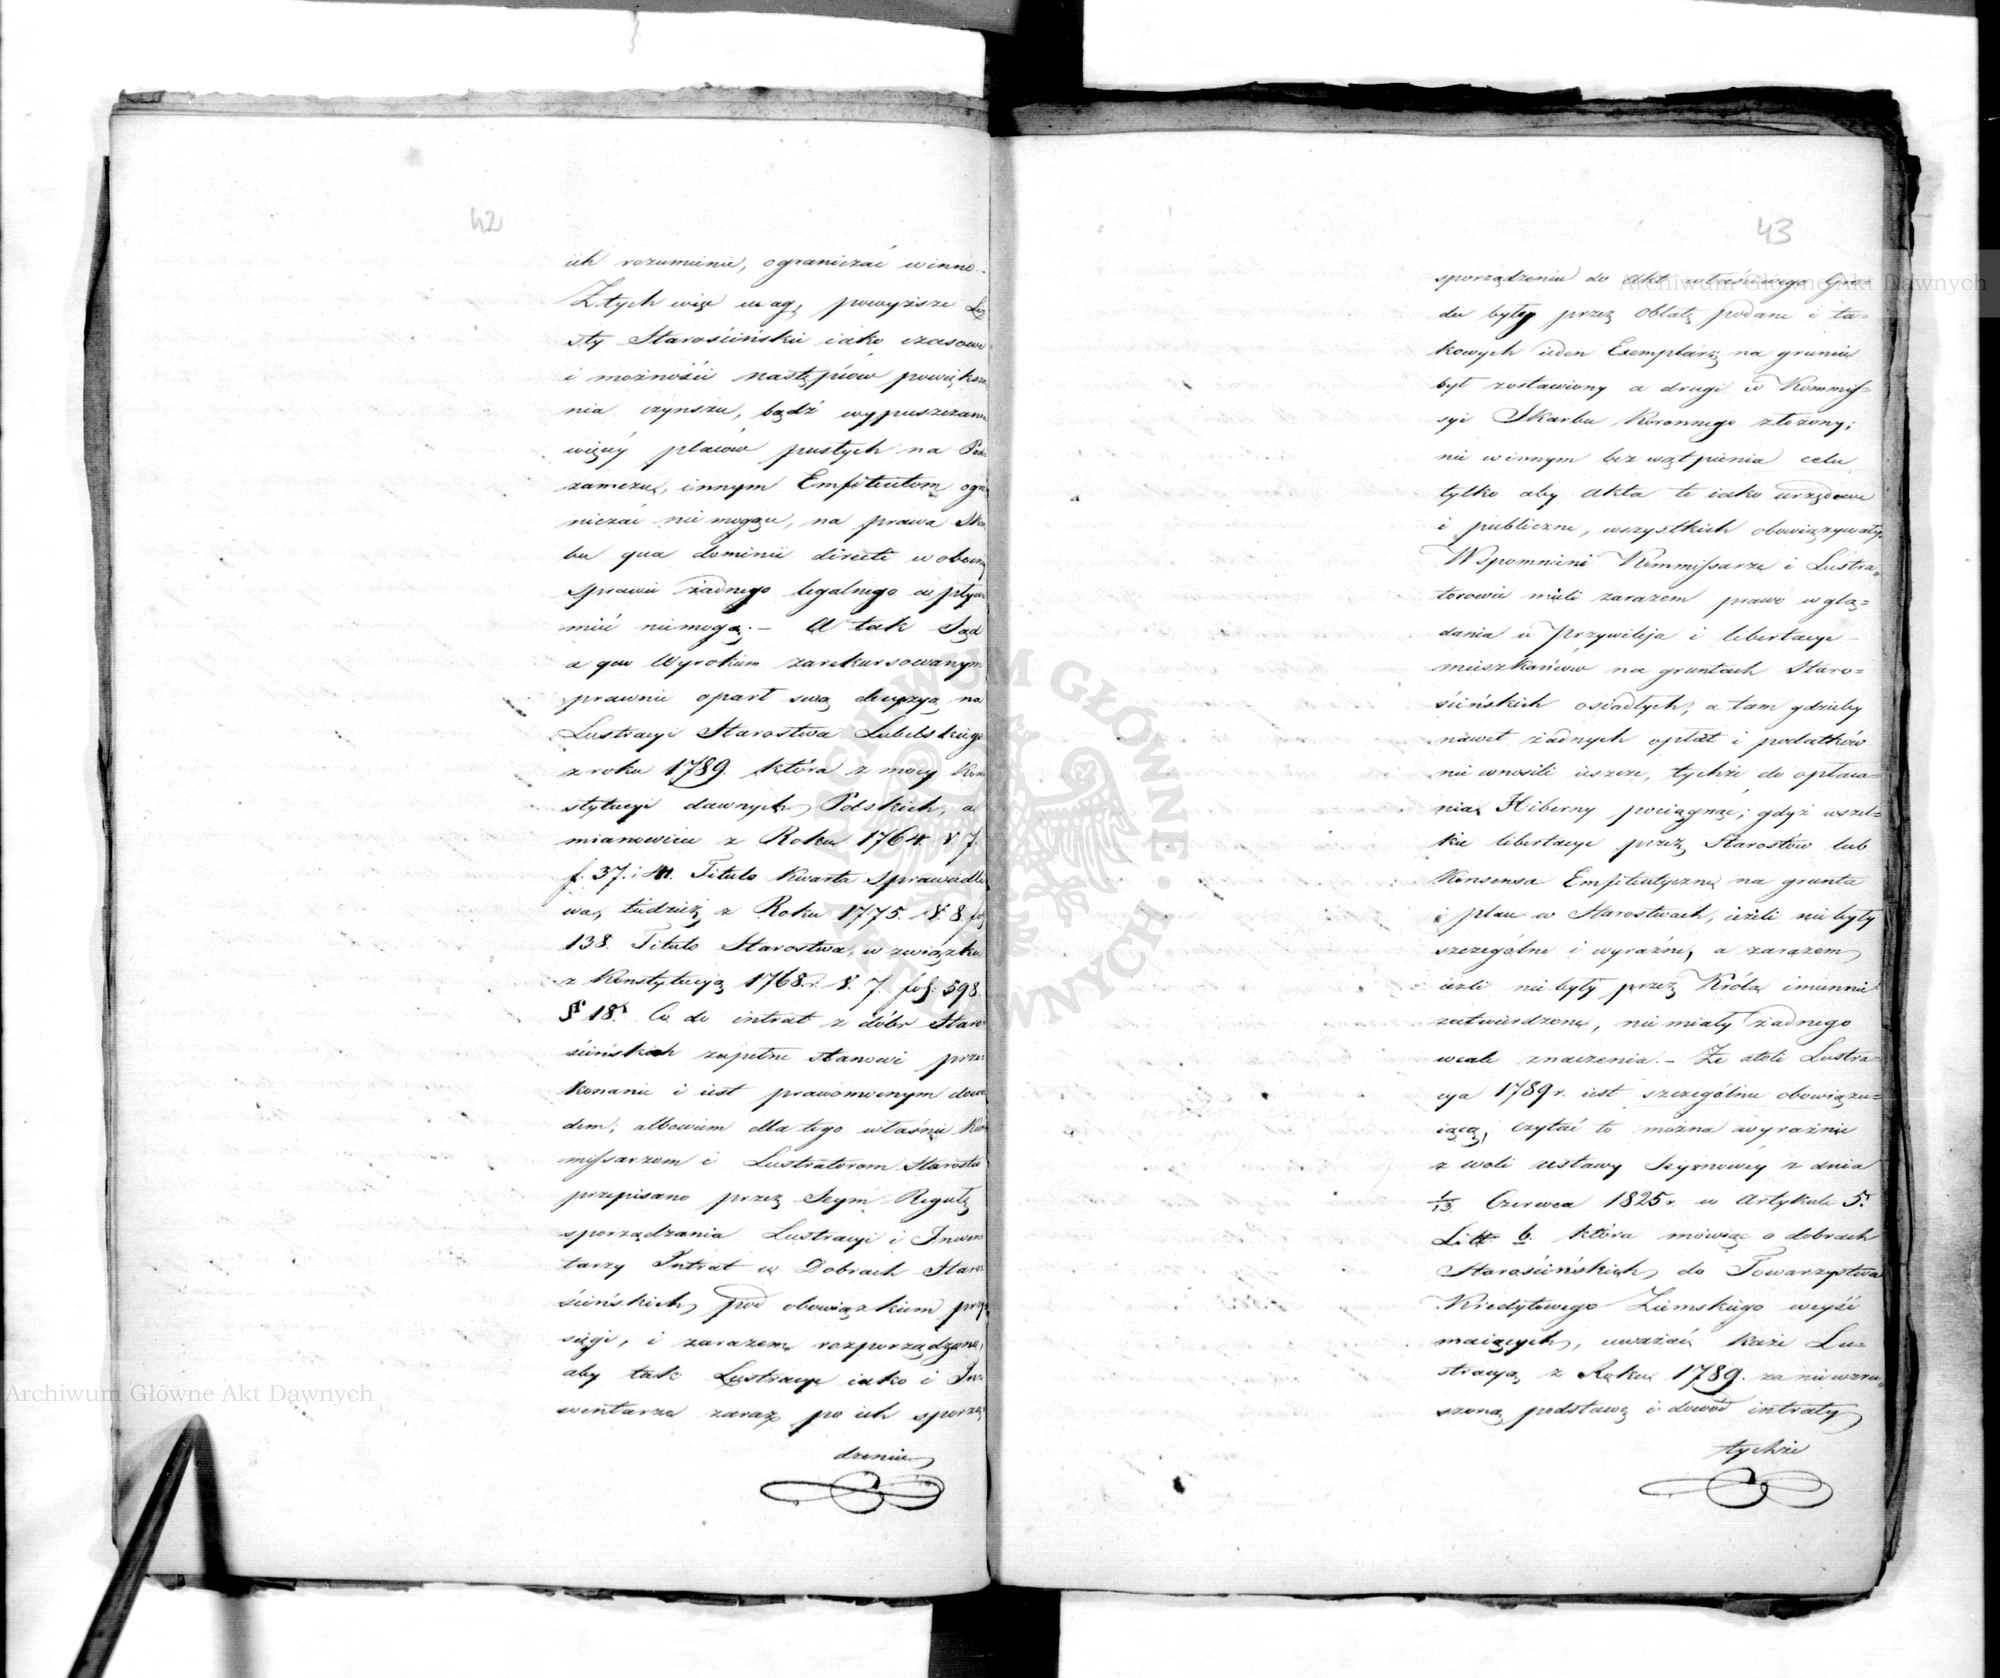 42
ich rozumienie, ograniczać winno.
Z tych więc uwag, powyższe Li-
sty Starościńskie iako czasowe
i możności następców powiększe
nia czynszu, bądź wypuszczania
więcéy placów pustych na Pod
zamczu, innym Emfiteutom ogra
niczać nie mogące, na prawa Skar
bu qua dominii directi w obecnéy
sprawie żadnego legalnego wpływu
mieć niemogą. — A tak Sąd
a quo Wyrokiem zarekursowanym
prawnie oparł swą decyzyą na
Lustracyi Starostwa Lubelskiego
z roku 1789. która z mocy Kon
stytucyi dawnych Polskich, a
mianowicie z Roku 1764. V. 7.
f. 37. i 41. Titulo Kwarta Sprawiedli
wa, tudzież z Roku 1775. V. 8. fol
138. Titulo Starostwa, w związku
z Konstytucyą 1768. r. V. 7. fol. 598.
§ 18. Co do intrat z dóbr Staro
ścińskich zupełne stanowi prze
konanie i iest prawomocnym dowo
dem, albowiem dla tego właśnie Kom
missarzom i Lustratorom Starostw
przepisano przez Seym Regułę
sporządzania Lustracyi i Inwen
tarzy Intrat w Dobrach Staro
ścińskich, pod obowiązkiem przy
sięgi, i zarazem rozporządzono,
aby tak Lustracye iako i In-
wentarze zaraz po ich sporzą
dzeniu
43
sporządzeniu do Akt właściwego Gro-
du były przez Oblatę podane i ta-
kowych ieden Exemplarz na gruncie
był zostawiony a drugi w Kommis-
syi Skarbu Koronnego złożony;
nie w innym bez wątpienia celu
tylko aby Akta te iako urzędowe
i publiczne, wszystkich obowiązywały.
Wspomnieni Kommissarze i Lustra-
torowie mieli zarazem prawo wglą-
dania w Przywileja i libertacye
mieszkańców na gruntach Staro-
ścińskich osiadłych, a tam gdzieby
nawet żadnych opłat i podatków
nie wnosili ieszcze, tychże do opłaca-
nia Hiberny pociągnąć; gdyż wszel-
kie libertacye przez Starostów lub
Konsensa Emfiteutyczne na grunta
i place w Starostwach, ieżeli nie były
szczególne i wyraźne, a zarazem
ieżli nie były przez Króla imiennie
zatwierdzone, nie miały żadnego
wcale znaczenia. — Że atoli Lustra-
cya 1789 r. iest szczególnie obowiązu-
iącą, czytać to można wyraźnie
z woli ustawy Seymowéy z dnia
1/13 Czerwca 1825 r. w Artykule 5.
Litt. b. która mówiąc o dobrach
Starościńskich, do Towarzystwa
Kredytowego Ziemskiego weyść
maiących, uważać każe Lu-
stracyą z Roku 1789. za niewzru-
szoną podstawę i dowód intraty
tychże
Archiwum Główne Akt Dawnych
Archiwum Główne Akt Dawnych
ARCHIWUM GŁÓWNE AKT DAWNYCH